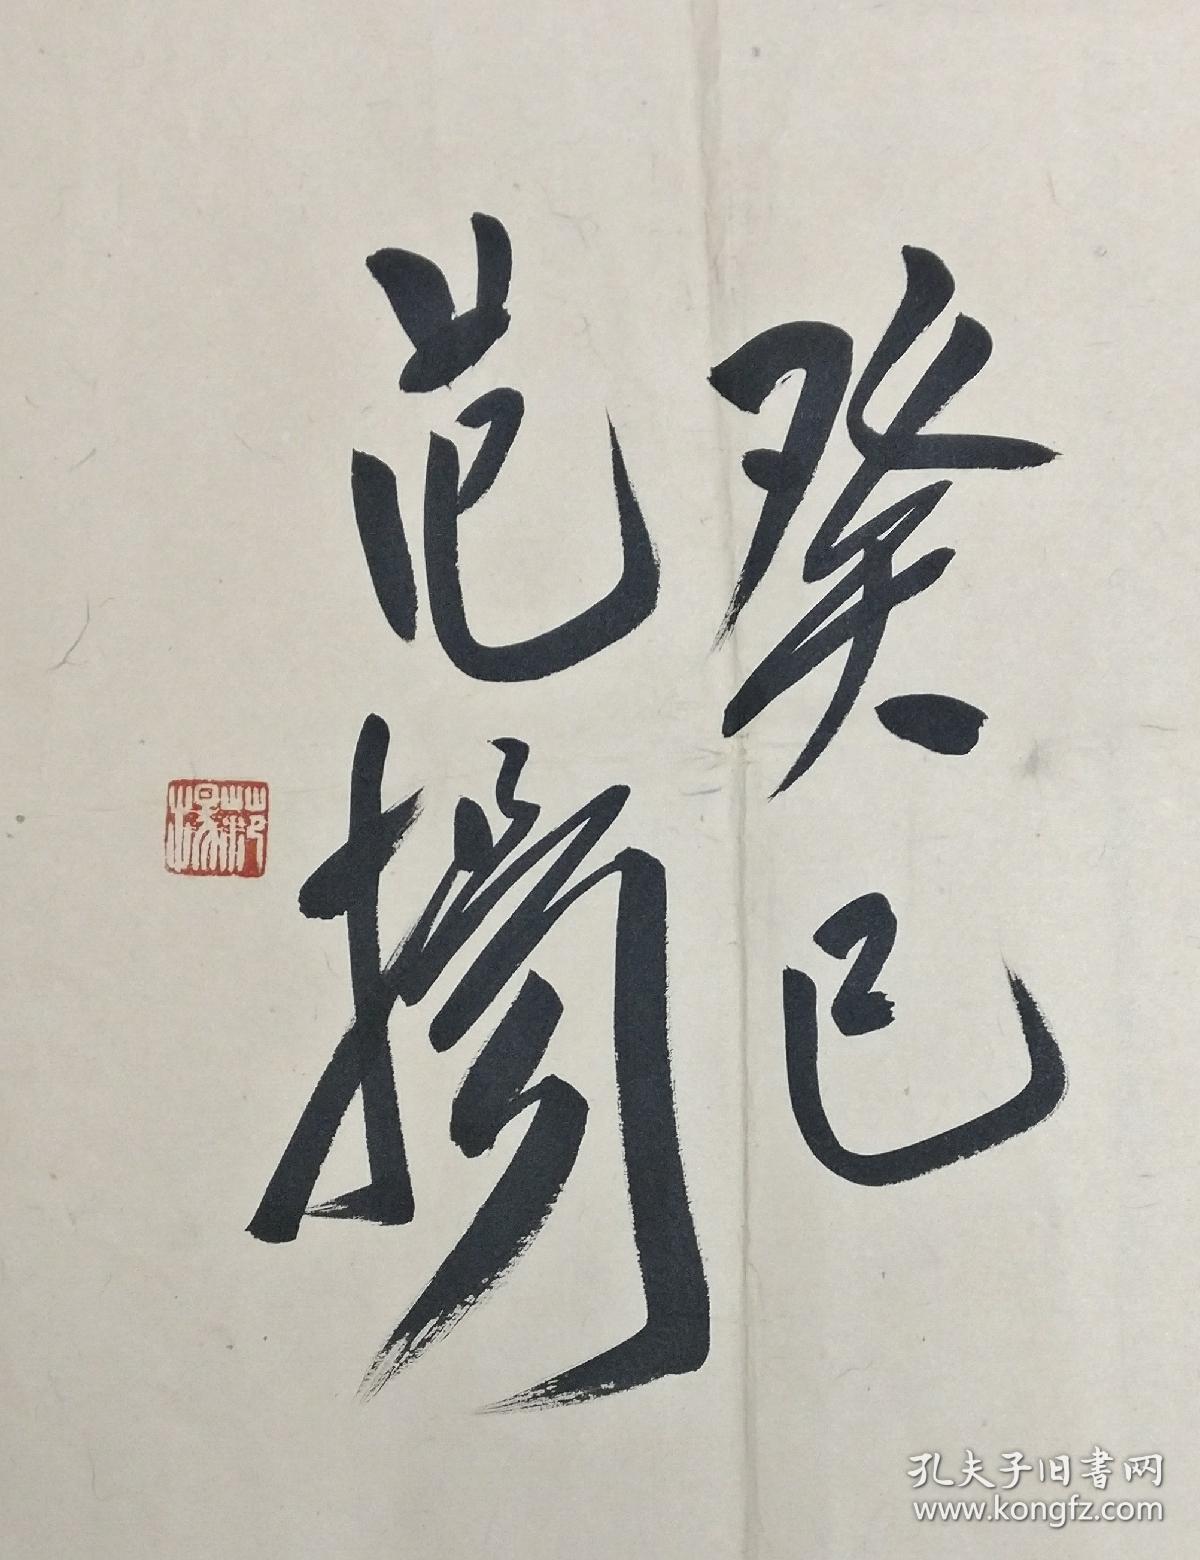 癸巳
范扬
孔夫子旧书网
www.kongfz.com